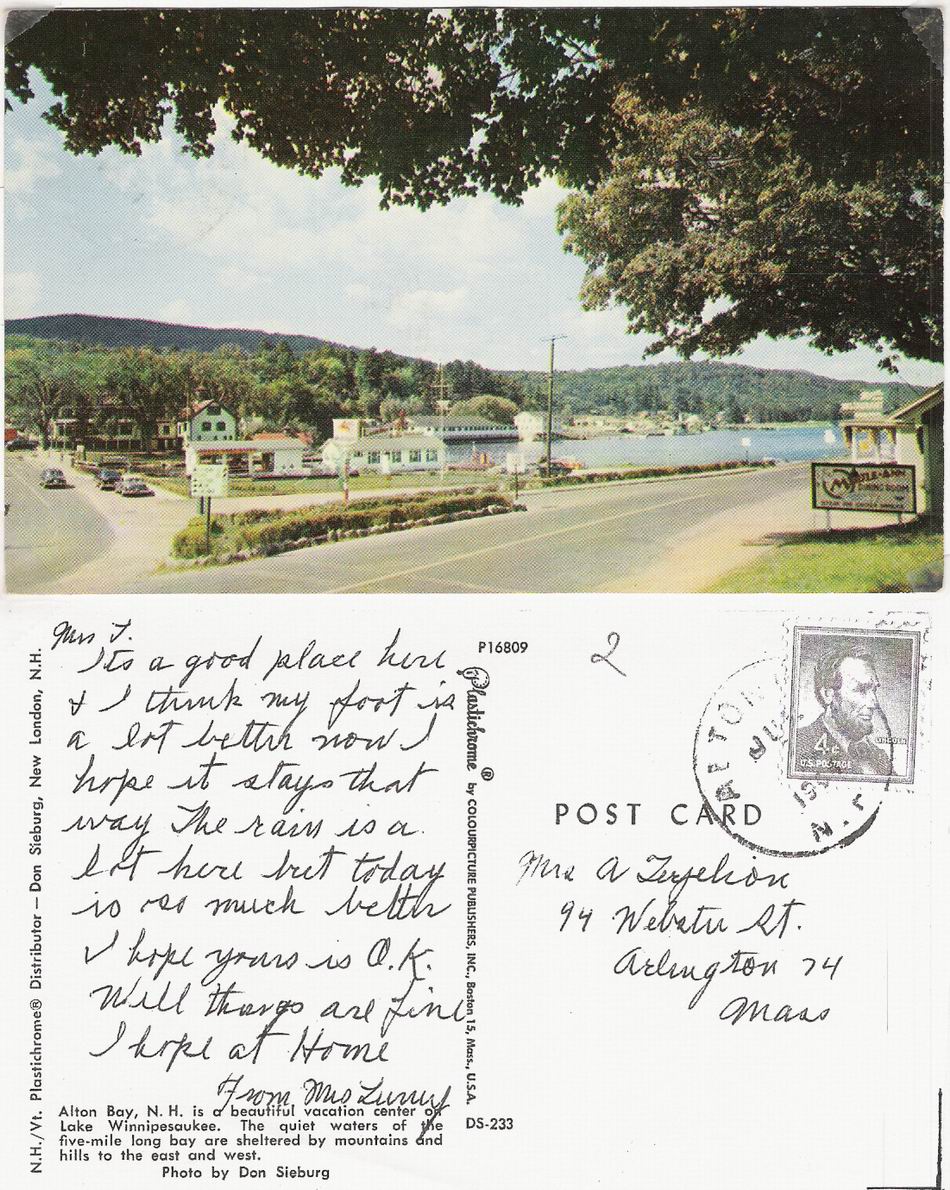 DINING ROOM
Mrs T.
Its a good place here
& I think my foot is
a lot better now I
hope it stays that
way The rain is a
lot here but today
is so much better
I hope yours is O.K.
Will things are fine
I hope at Home
From Mrs
Alton Bay, N. H. is a beautiful vacation center of
Lake Winnipesaukee. The quiet waters of the
five-mile long bay are sheltered by mountains and
hills to the east and west.
Photo by Don Sieburg
N.H./Vt. Plastichrome® Distributor — Don Sieburg, New London, N.H.
P16809
Plastichrome ® by COLOURPICTURE PUBLISHERS, INC., Boston 15, Mass., U.S.A.
DS-233
2
ALTON
N.
LINCOLN
4¢
U.S. POSTAGE
POST CARD
Mrs A
94 Webster St.
Arlington 74
Mass